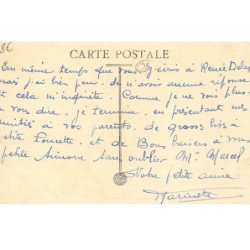 8€
CARTE POSTALE
En même temps que vous j'écris à Renée
mais j'ai bien peur de n'avoir aucune réponse
et cela m'inquiète. Comme je ne vois plus
vous dire, je termine, en présentant mes
amitiés à vos parents, de gros bisous à
petite Poucette et de Bons baisers à vous
petite Simone sans oublier Mr Marcel
Votre petite amie